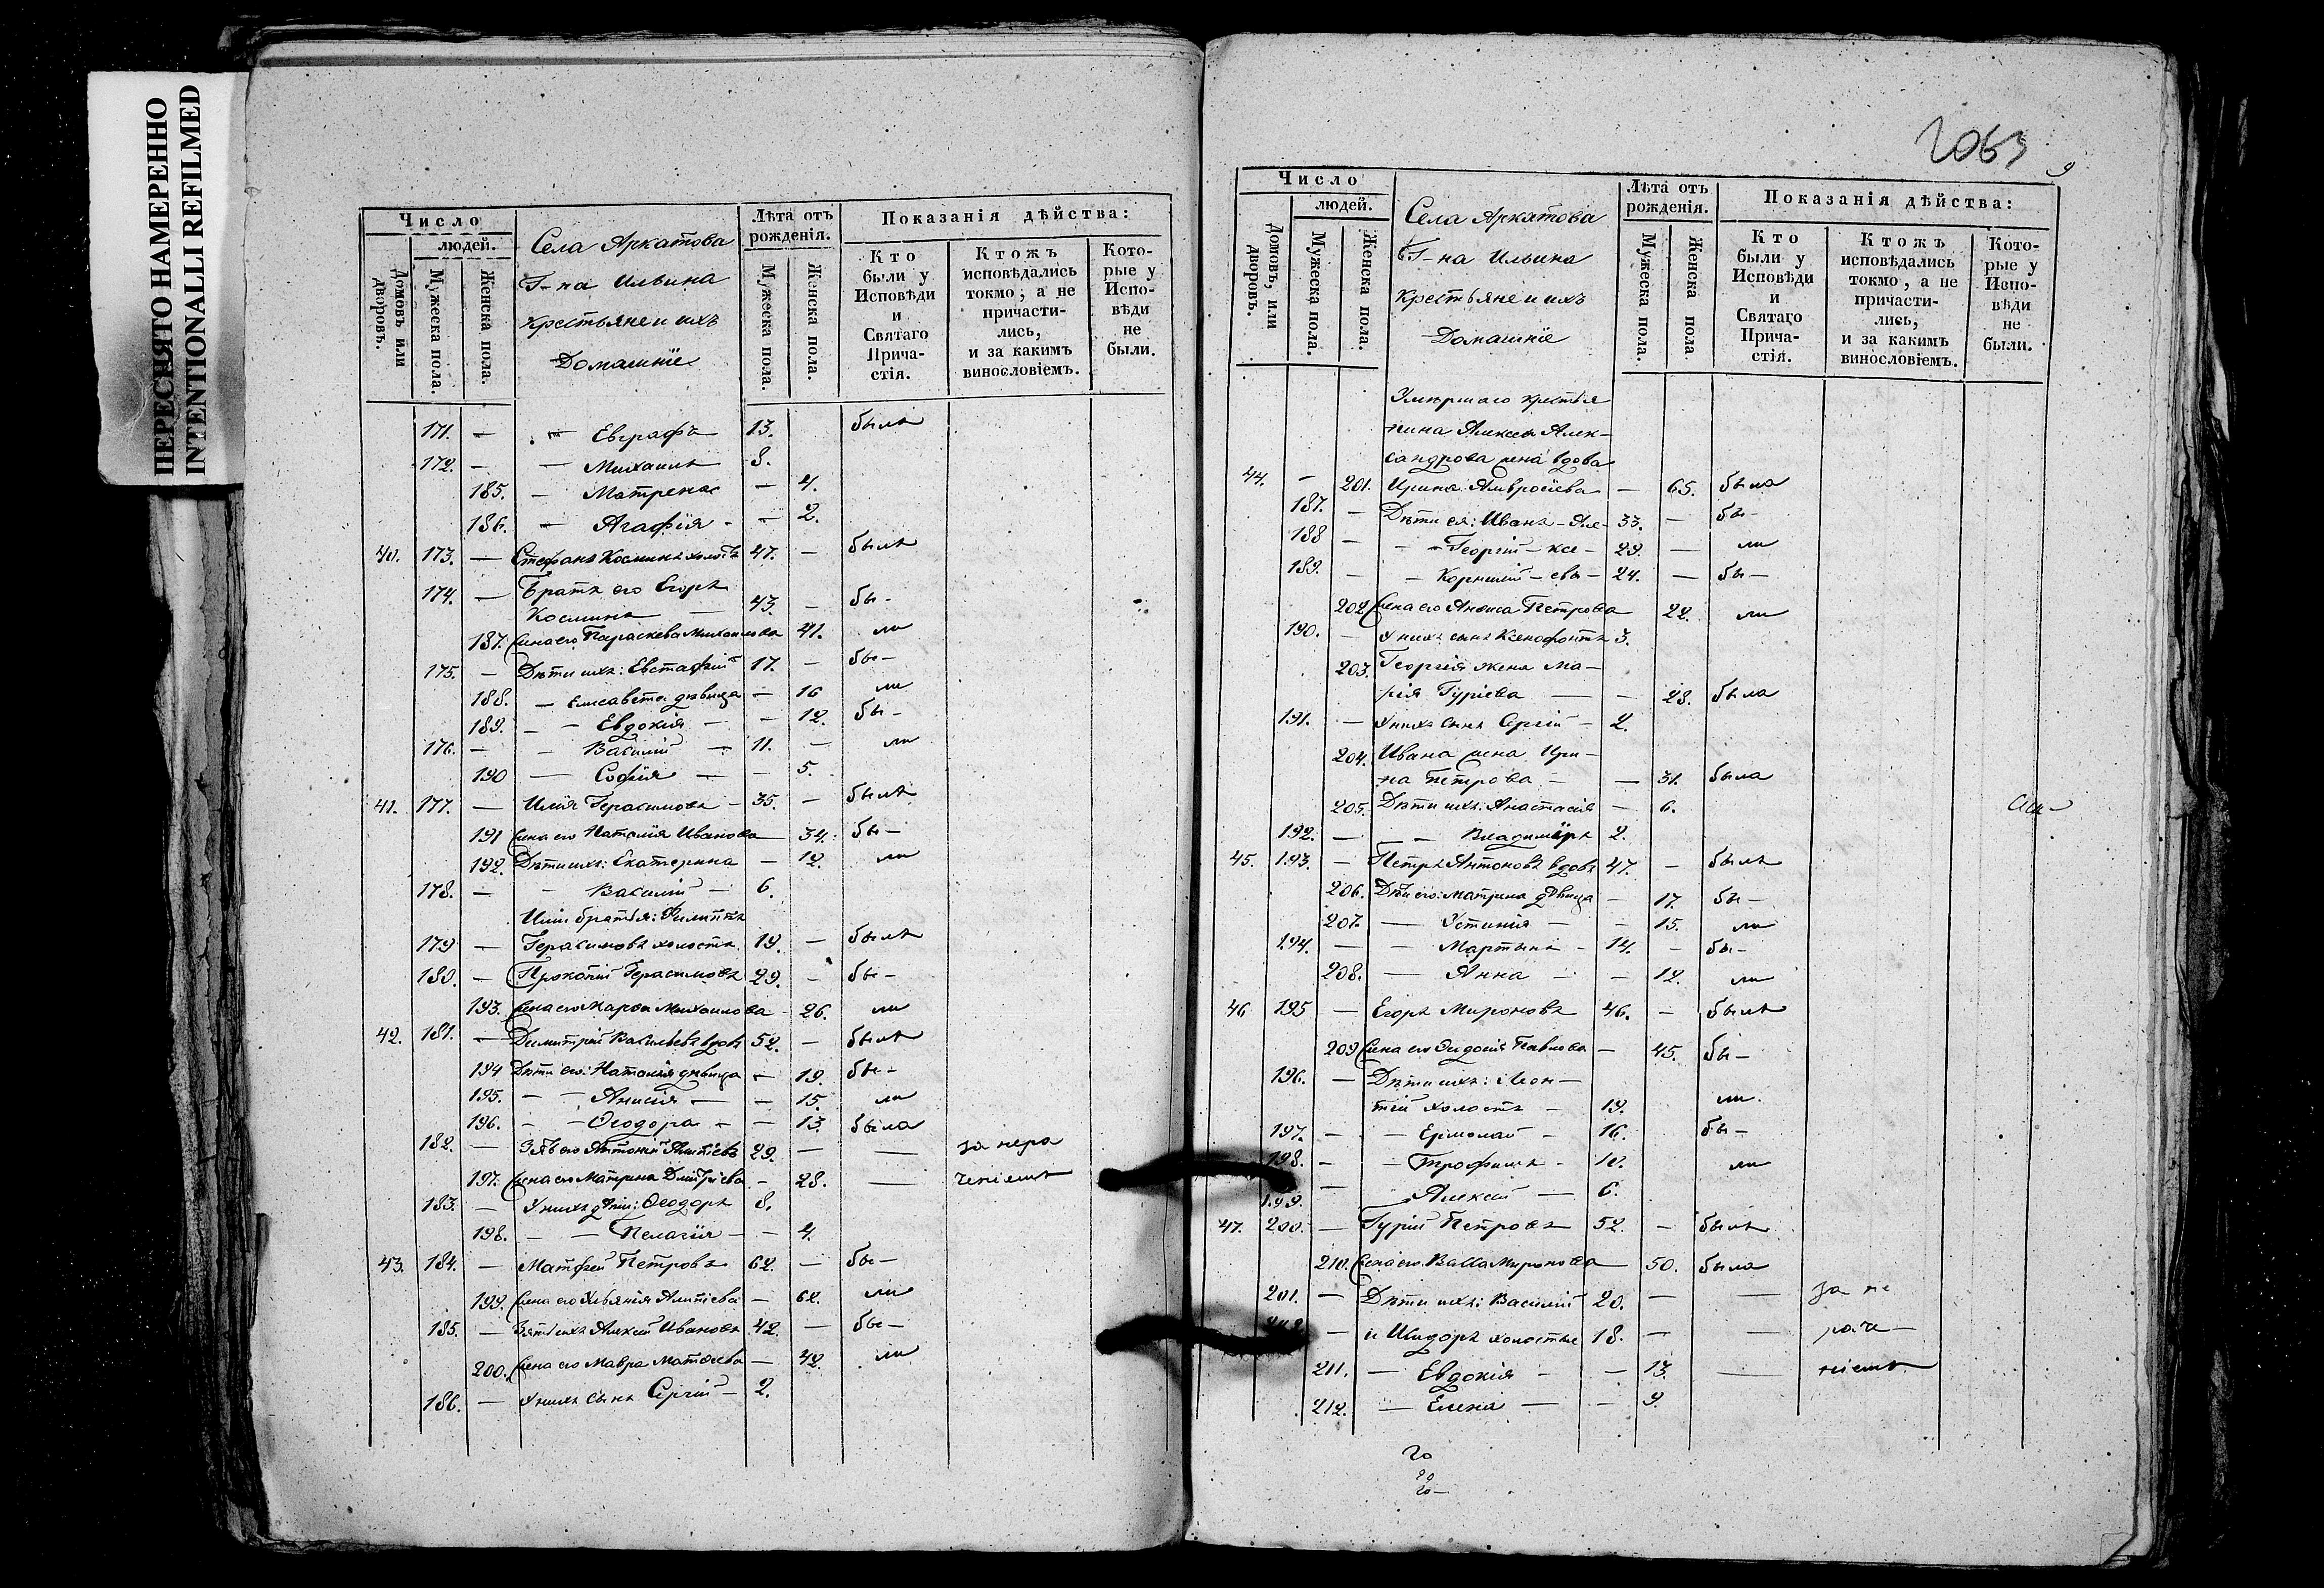 ПЕРЕСНЯТО НАМЕРЕННО
INTENTIONALLI REFILMED
Число
людей.
Домовъ или дворовъ.
Мужеска пола.
Женска пола.
Села Аркатова
Г-на Ильина
крестьяне и ихъ
Домашніе
Лѣта отъ рожденія.
Мужеска пола.
Женска пола.
Показанія дѣйства:
Кто были у Исповѣди и Святаго Прича- стія.
Ктожъ исповѣдались токмо, а не причасти- лись, и за какимъ винословіемъ.
Кото- рые у Испо- вѣди не были.
171. — — Евграфъ 13. былъ
172. — — Михаилъ 8.
185. — Матрена — 4.
186. — Агафія — — 2.
40. 173. — Стефанъ Косминъ холостъ 47. — былъ
174. — Братъ его Егоръ
Косминъ — 43. — бы-
187. Жена его Параскева Михаилова 41. ли
175. — Дѣти ихъ: Евстафій 17. — бы-
188. — Елисавета дѣвица — 16 ли
189. — — Евдокія — — 12. бы-
176. — — Василій — 11. — ли
190 — Софія — — 5.
41. 177. — Илія Герасимовъ — 35. — былъ
191 Жена его Наталія Иванова 34. бы-
192. Дѣти ихъ: Екатерина — 12. ли
178. — — Василій — 6.
Иліи братья: Филиппъ
179 — Герасимовъ холостъ 19. — былъ
180. — Прокопій Герасимовъ 29. — бы-
193. Жена его Марѳа Михаилова 26. ли
42. 181. — Димитрій Васильевъ вдовъ 52. — былъ
194 Дѣти его: Наталія дѣвица — 19. бы-
195. — — Анисія — — 15. ли
196. — — Ѳеодора — — 13. была
182. — Зять его Антоній 29. — — за нера
197. Жена его Матрина Дмитріева — 28. — ченіемъ
183. — У нихъ дѣти: Ѳеодоръ 8.
198. — — Пелагія — — 4.
43. 184. — Матѳей Петровъ 62. — бы-
199. Жена его — 62. ли
185. — Зять ихъ Алексій Ивановъ 42. — бы-
200. Жена его Мавра Матѳеева — 42. ли
186. — У нихъ сынъ Сергій — 2.
2063
9
Число
людей.
Домовъ, или дворовъ.
Мужеска пола.
Женска пола.
Села Аркатова
Г-на Ильина
крестьяне и ихъ
Домашніе
Лѣта отъ рожденія.
Мужеска пола.
Женска пола
Показанія дѣйства:
Кто были у Исповѣди и Святаго Прича- стія.
Ктожъ исповѣдались токмо, а не причасти- лись, и за какимъ винословіемъ.
Кото- рые у Испо- вѣди не были.
Умершаго крестья
нина Алексея Алек-
сандрова жена вдова
44. — 201. Ирина Амвросіева — 65. была
187. — Дѣти ея: Иванъ — Але- 33. — бы-
188 — — Георгій — ксе- 29. — ли
189. — — Корнилій — евы — 24. — бы-
202 Жена его Анѳиса Петрова 22. ли
190. — У нихъ сынъ Ксенофонтъ 3.
203. Георгія жена Ма-
рія Гуріева — — 28. была
191. — У нихъ сынъ Сергій — 2.
204. Ивана жена Ири-
на Петрова — — 31. была
205. Дѣти ихъ: Анастасія — 6.
192. — — Владиміръ 2.
45. 193. — Петръ Антоновъ вдовъ 47. — былъ
206. Дѣти его: Матрина дѣвица — 17. бы-
207. — Устинія — — 15. ли
194. — — Мартынъ — 14. — бы-
208. — Анна — — 12. ли
46 195 — Егоръ Мироновъ 46. — былъ
209 Жена его Ѳедосія Павлова — 45. бы-
196. — Дѣти ихъ: Леон-
тій холостъ — 19. ли
197. — — Ермолай — 16. бы-
198. — — Трофимъ — ли
199. — Алексій — 6.
47. 200. — Гурій Петровъ 52. — былъ
210. Жена его Васса Миронова 50. была
201. — Дѣти ихъ: Василій 20. — — за не
— и Исидоръ холостые 18. — — раче-
211. — Евдокія — — 13. — ніемъ
212. — Елена — — 9.